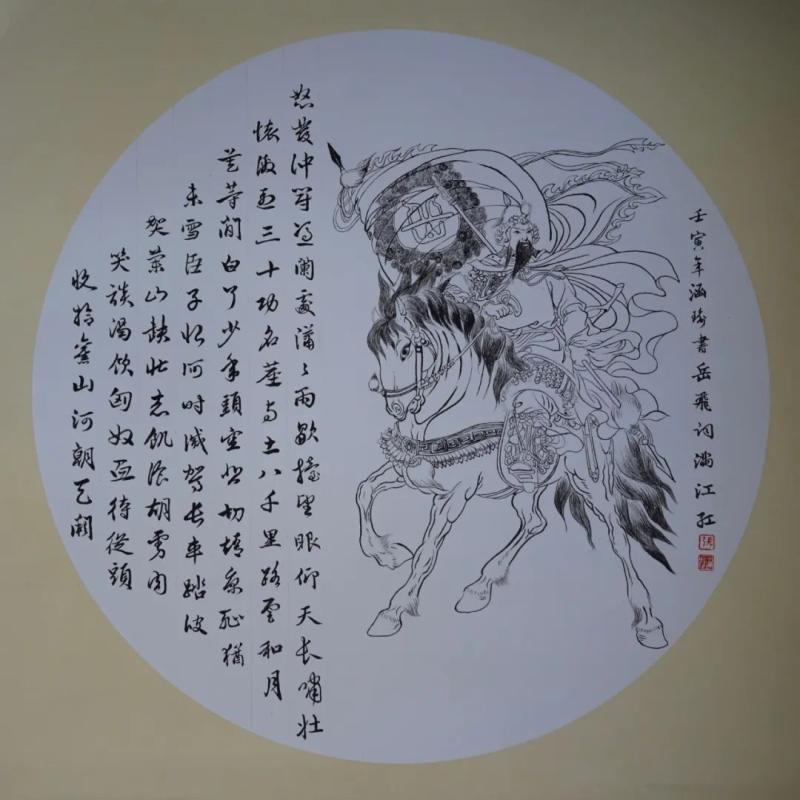 怒發沖冠憑闌處瀟々雨歇擡望眼仰天長嘯壯
懷激烈三十功名塵与土八千里路雲和月
莫等閒白了少年頭空悲切靖康恥猶
未雪臣子恨何時滅駕長車踏破
賀蘭山缺壯志飢飡胡虜肉
笑談渴飲匈奴血待從頭
收拾舊山河朝天闕
壬寅年涵瑜書岳飛詞滿江紅